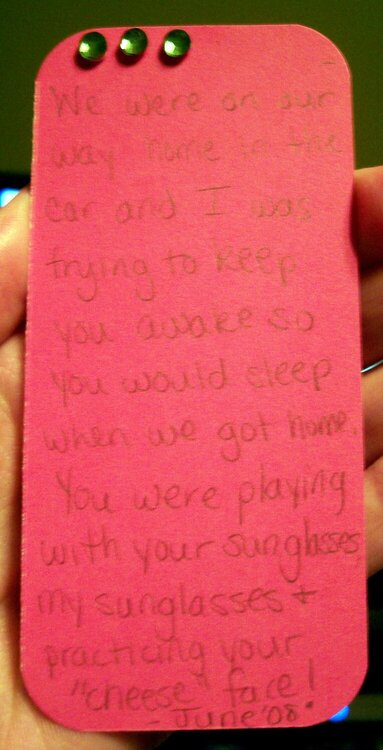 We were on our
way home in the
car and I was
trying to keep
you awake so
you would sleep
when we got home.
You were playing
with your sunglasses,
my sunglasses +
practicing your
"cheese" face!
- June '08